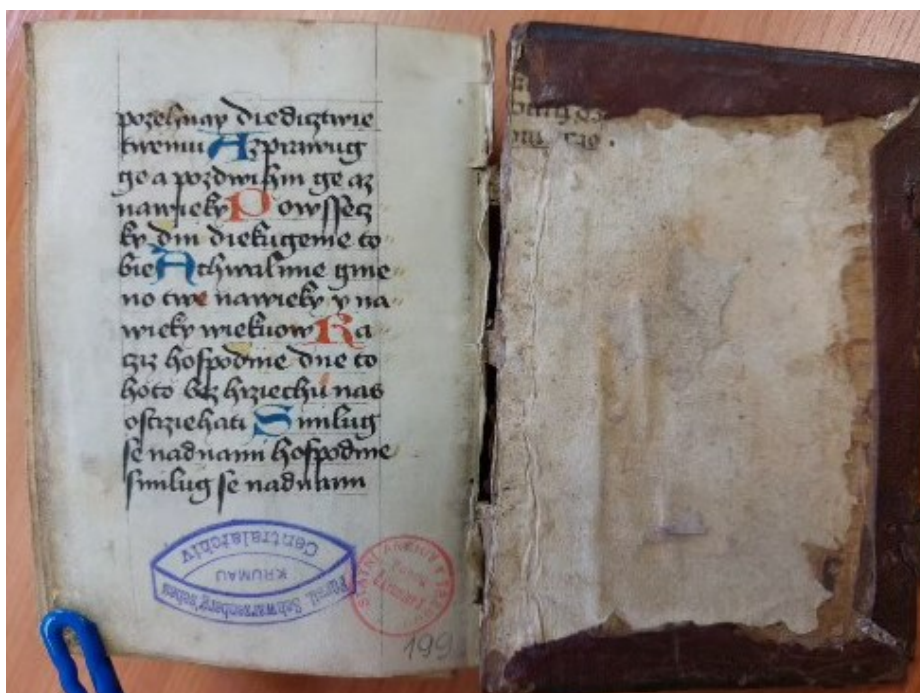 pozehnay diedicztwie
twemu A zprawug
ge a pozdwihni ge az
nawieky Powssecz
ky dni diekugeme to
bie A chwalime gme
no twe nawieky y na
wieky wiekuow Ra
cziz hospodine dne to
hoto bez hrziechu nas
ostrziehati Smilug
se nad nami hospodine
smilug se nad nami
Fürstl. Schwarzenberg'sches
KRUMAU
Centralarchiv
STATNI ARCHIV TŘEBOŇ
199